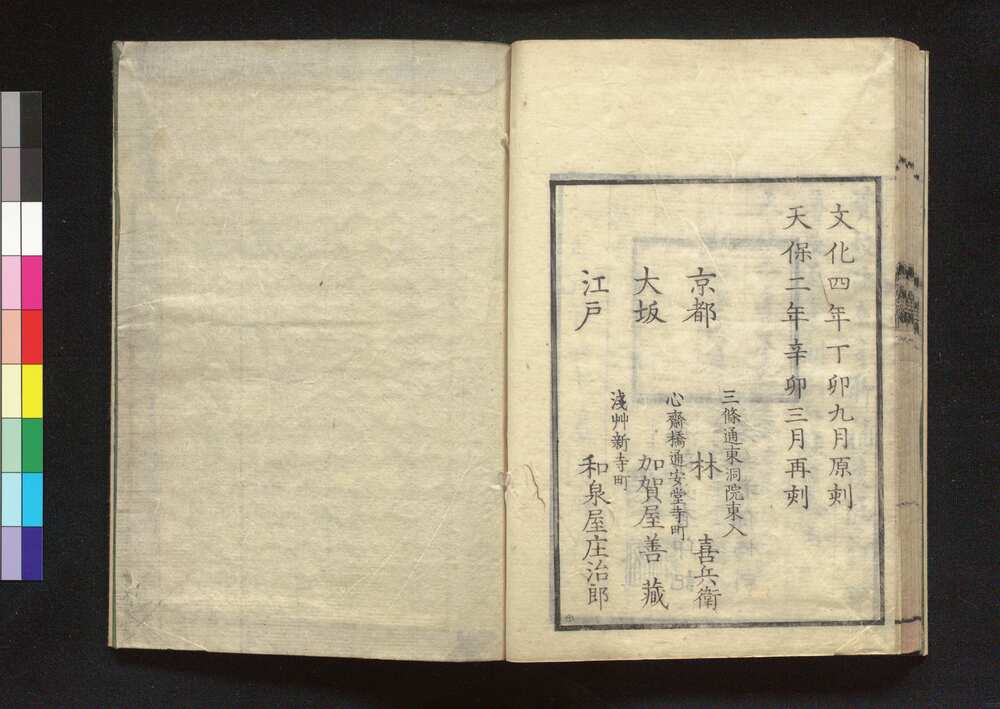 文化四年丁卯九月原刺
天保二年辛卯三月再刻
京都
三條通東洞院東入
林 喜兵衛
大坂
心齋橋通安堂寺町
加賀屋善藏
江戸
淺艸新寺町
和泉屋庄治郎